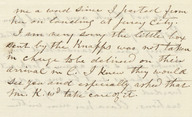 me a word since I parted from
you on landing at Jersey City.
I am very sorry the little box
sent by the Knapps was not taken
in charge to be delivered on their
arrival in C. I knew they would
see you and especially asked that
Mr. K. wd take care of it.